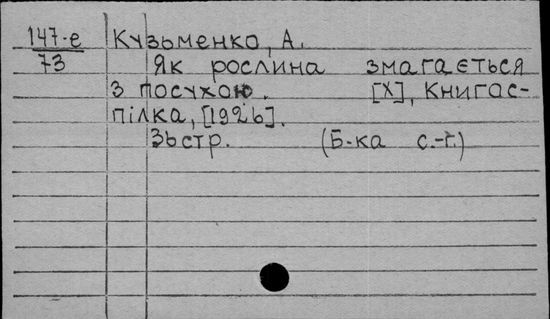 147-е Кузьменко, А.
73 Як рослина змагається
з посухою. [Х], Книгас-
пілка, [1926].
36стр. (Б-ка с.-г.)